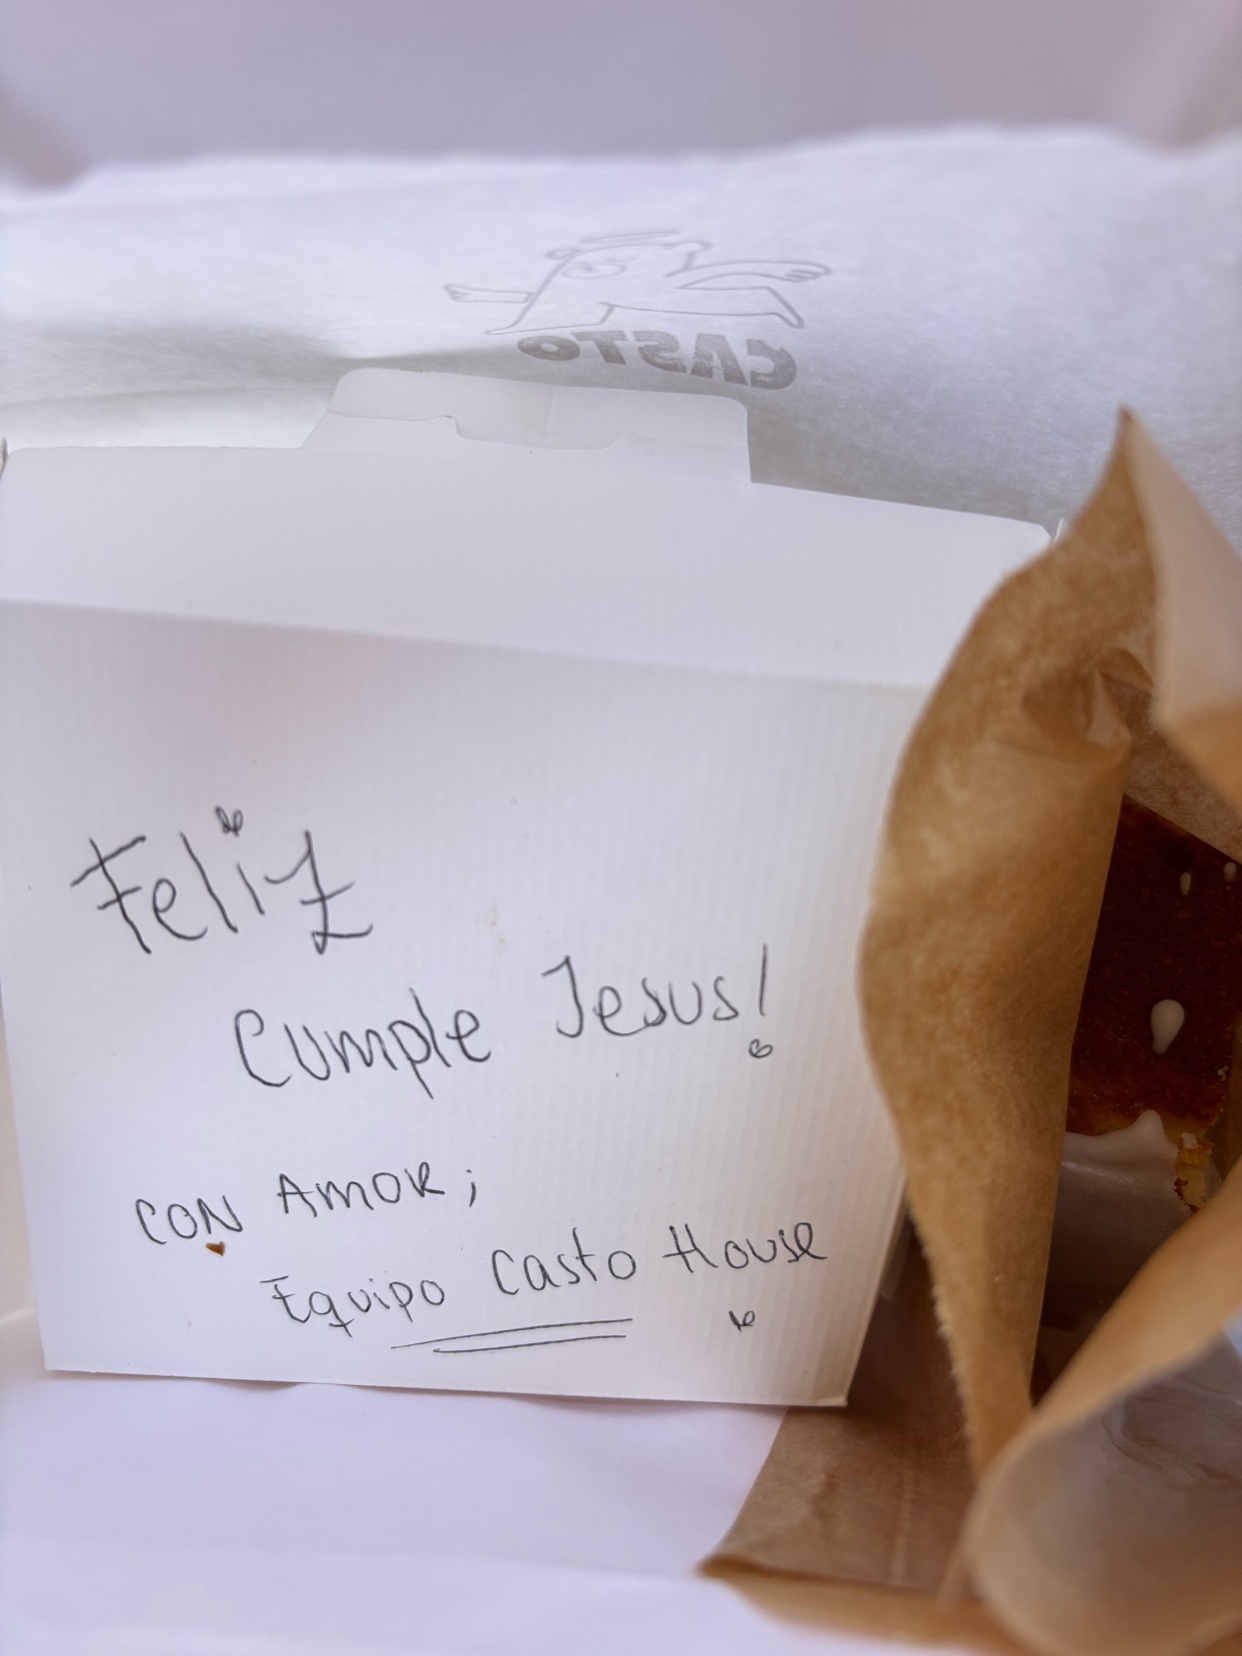 CASTO
Feliz
Cumple Jesus!
CON AMOR;
Equipo Casto House